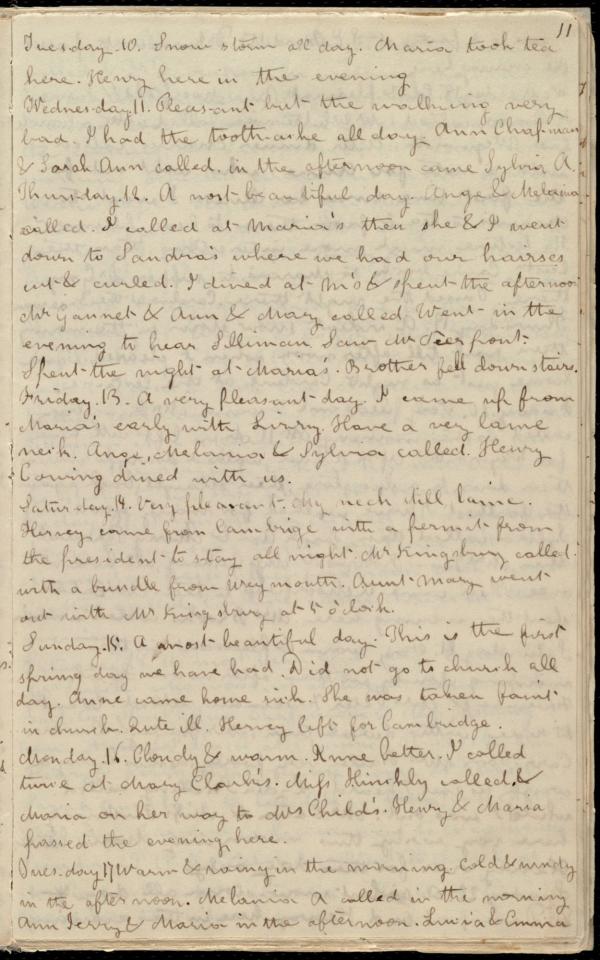 11
Tuesday.10. Snow storm all day. Maria took tea
here. Henry here in the evening
Wednesday 11. Pleasant but the walking very
bad. I had the tooth-ashe all day. Ann Chapman
& Sarah Ann called. in the afternoon came Sylvia A.
Thursday.12. A most beautiful day. Ange & Melania
called. I called at Maria's then she & I went
down to Sandra's where we had our hairses
cut & curled. I dined at M's & spent the afternoon
Mr Gannet & Ann & Mary called. Went in the
evening to hear Silliman. Saw Mr Peirpont.
Spent the night at Maria's. Brother fell down stairs.
Friday.13. A very pleasant day. I came up from
Maria's early with Lizzy. Have a very lame
neck. Ange, Melania & Sylvia called. Henry
Coming dined with us.
Saturday.14. Very pleasant. My neck still lame.
Hervey came from Cambrige with a permit from
the president to stay all night. Mr Kingsbury called
with a bundle from Weymouth. Aunt Mary went
out with Mr Kingsbury at 5 o'clock.
Sunday.15. A most beautiful day. This is the first
spring day we have had. Did not go to church all
day. Anne came home sick. She was taken faint
in church. Quite ill. Hervey left for Cambridge.
Monday.16. Cloudy & warm. Anne better. I called
twice at Mary Clark's. Miss Hinckly called &
Maria on her way to Mrs Child's. Henry & Maria
passed the evening here.
Tuesday 17 Warm & rainy in the morning. Cold & windy
in the afternoon. Melania A called in the morning
Ann Terry & Maria in the afternoon. Lucia & Emma